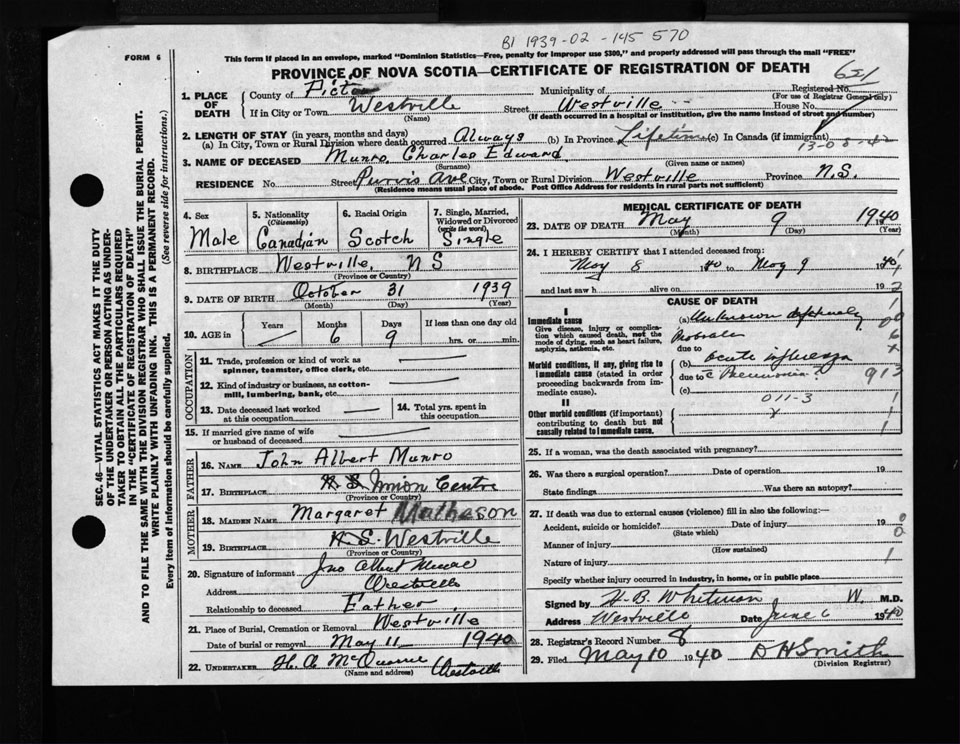 BI 1939-02-145570
FORM 6
This form if placed in an envelope, marked "Dominion Statistics—Free, penalty for improper use $300," and properly addressed will pass through the mail "FREE"
PROVINCE OF NOVA SCOTIA—CERTIFICATE OF REGISTRATION OF DEATH
651
SEC. 46—VITAL STATISTICS ACT MAKES IT THE DUTY
OF THE UNDERTAKER OR PERSON ACTING AS UNDER-
TAKER TO OBTAIN ALL THE PARTICULARS REQUIRED
IN THE "CERTIFICATE OF REGISTRATION OF DEATH"
AND TO FILE THE SAME WITH THE DIVISION REGISTRAR WHO SHALL ISSUE THE BURIAL PERMIT.
WRITE PLAINLY WITH UNFADING INK. THIS IS A PERMANENT RECORD.
Every item of Information should be carefully supplied. (See reverse side for instructions.)
1. PLACE OF DEATH County of Pictou Municipality of Registered No.
(For use of Registrar General only)
If in City or Town Westville Street Westville House No.
(Name) (If death occurred in a hospital or institution, give the name instead of street and number)
2. LENGTH OF STAY (in years, months and days)
(a) In City, Town or Rural Division where death occurred Always (b) In Province Lifetime (c) In Canada (if immigrant)
13-05-42
3. NAME OF DECEASED Munro, Charles Edward
(Surname) (Given name or names)
RESIDENCE No. Street Purvis Ave City, Town or Rural Division Westville Province N.S.
(Residence means usual place of abode. Post Office Address for residents in rural parts not sufficient)
4. Sex 5. Nationality (Citizenship) 6. Racial Origin 7. Single, Married, Widowed or Divorced (write the word)
Male Canadian Scotch Single
8. BIRTHPLACE Westville, N S
(Province or Country)
9. DATE OF BIRTH October 31 1939
(Month) (Day) (Year)
10. AGE in Years Months Days If less than one day old
6 9 hrs. or min.
OCCUPATION
11. Trade, profession or kind of work as
spinner, teamster, office clerk, etc.
12. Kind of industry or business, as cotton-
mill, lumbering, bank, etc.
13. Date deceased last worked
at this occupation
14. Total yrs. spent in
this occupation
15. If married give name of wife
or husband of deceased
FATHER
16. NAME John Albert Munro
17. BIRTHPLACE N S Union Centre
(Province or Country)
MOTHER
18. MAIDEN NAME Margaret Matheson
19. BIRTHPLACE N S. Westville
(Province or Country)
20. Signature of informant Jno Albert Munro
Address Westville
Relationship to deceased Father
21. Place of Burial, Cremation or Removal Westville
Date of burial or removal May 11 1940
22. UNDERTAKER Westville
(Name and address)
MEDICAL CERTIFICATE OF DEATH
23. DATE OF DEATH May 9 1940
(Month) (Day) (Year)
24. I HEREBY CERTIFY that I attended deceased from:
May 8 1940 to May 9 1940
and last saw h alive on 19
CAUSE OF DEATH
I
Immediate cause (a) Unknown
Give disease, injury or complica-
tion which caused death, not the
mode of dying, such as heart failure,
asphyxia, asthenia, etc.
due to
Morbid conditions, if any, giving rise to
immediate cause (stated in order
proceeding backwards from im-
mediate cause).
(b) acute influenza
due to c Pneumonia?
(c)
913
011-3
II
Other morbid conditions (if important)
contributing to death but not
causally related to immediate cause.
25. If a woman, was the death associated with pregnancy?
26. Was there a surgical operation? Date of operation 19
State findings Was there an autopsy?
27. If death was due to external causes (violence) fill in also the following:—
Accident, suicide or homicide? Date of injury 19
(State which)
Manner of injury
(How sustained)
Nature of injury
Specify whether injury occurred in industry, in home, or in public place
Signed by H B Whitman W. M.D.
Address Westville Date June 6 1940
28. Registrar's Record Number 8
29. Filed May 10 1940 D H Smith
(Division Registrar)